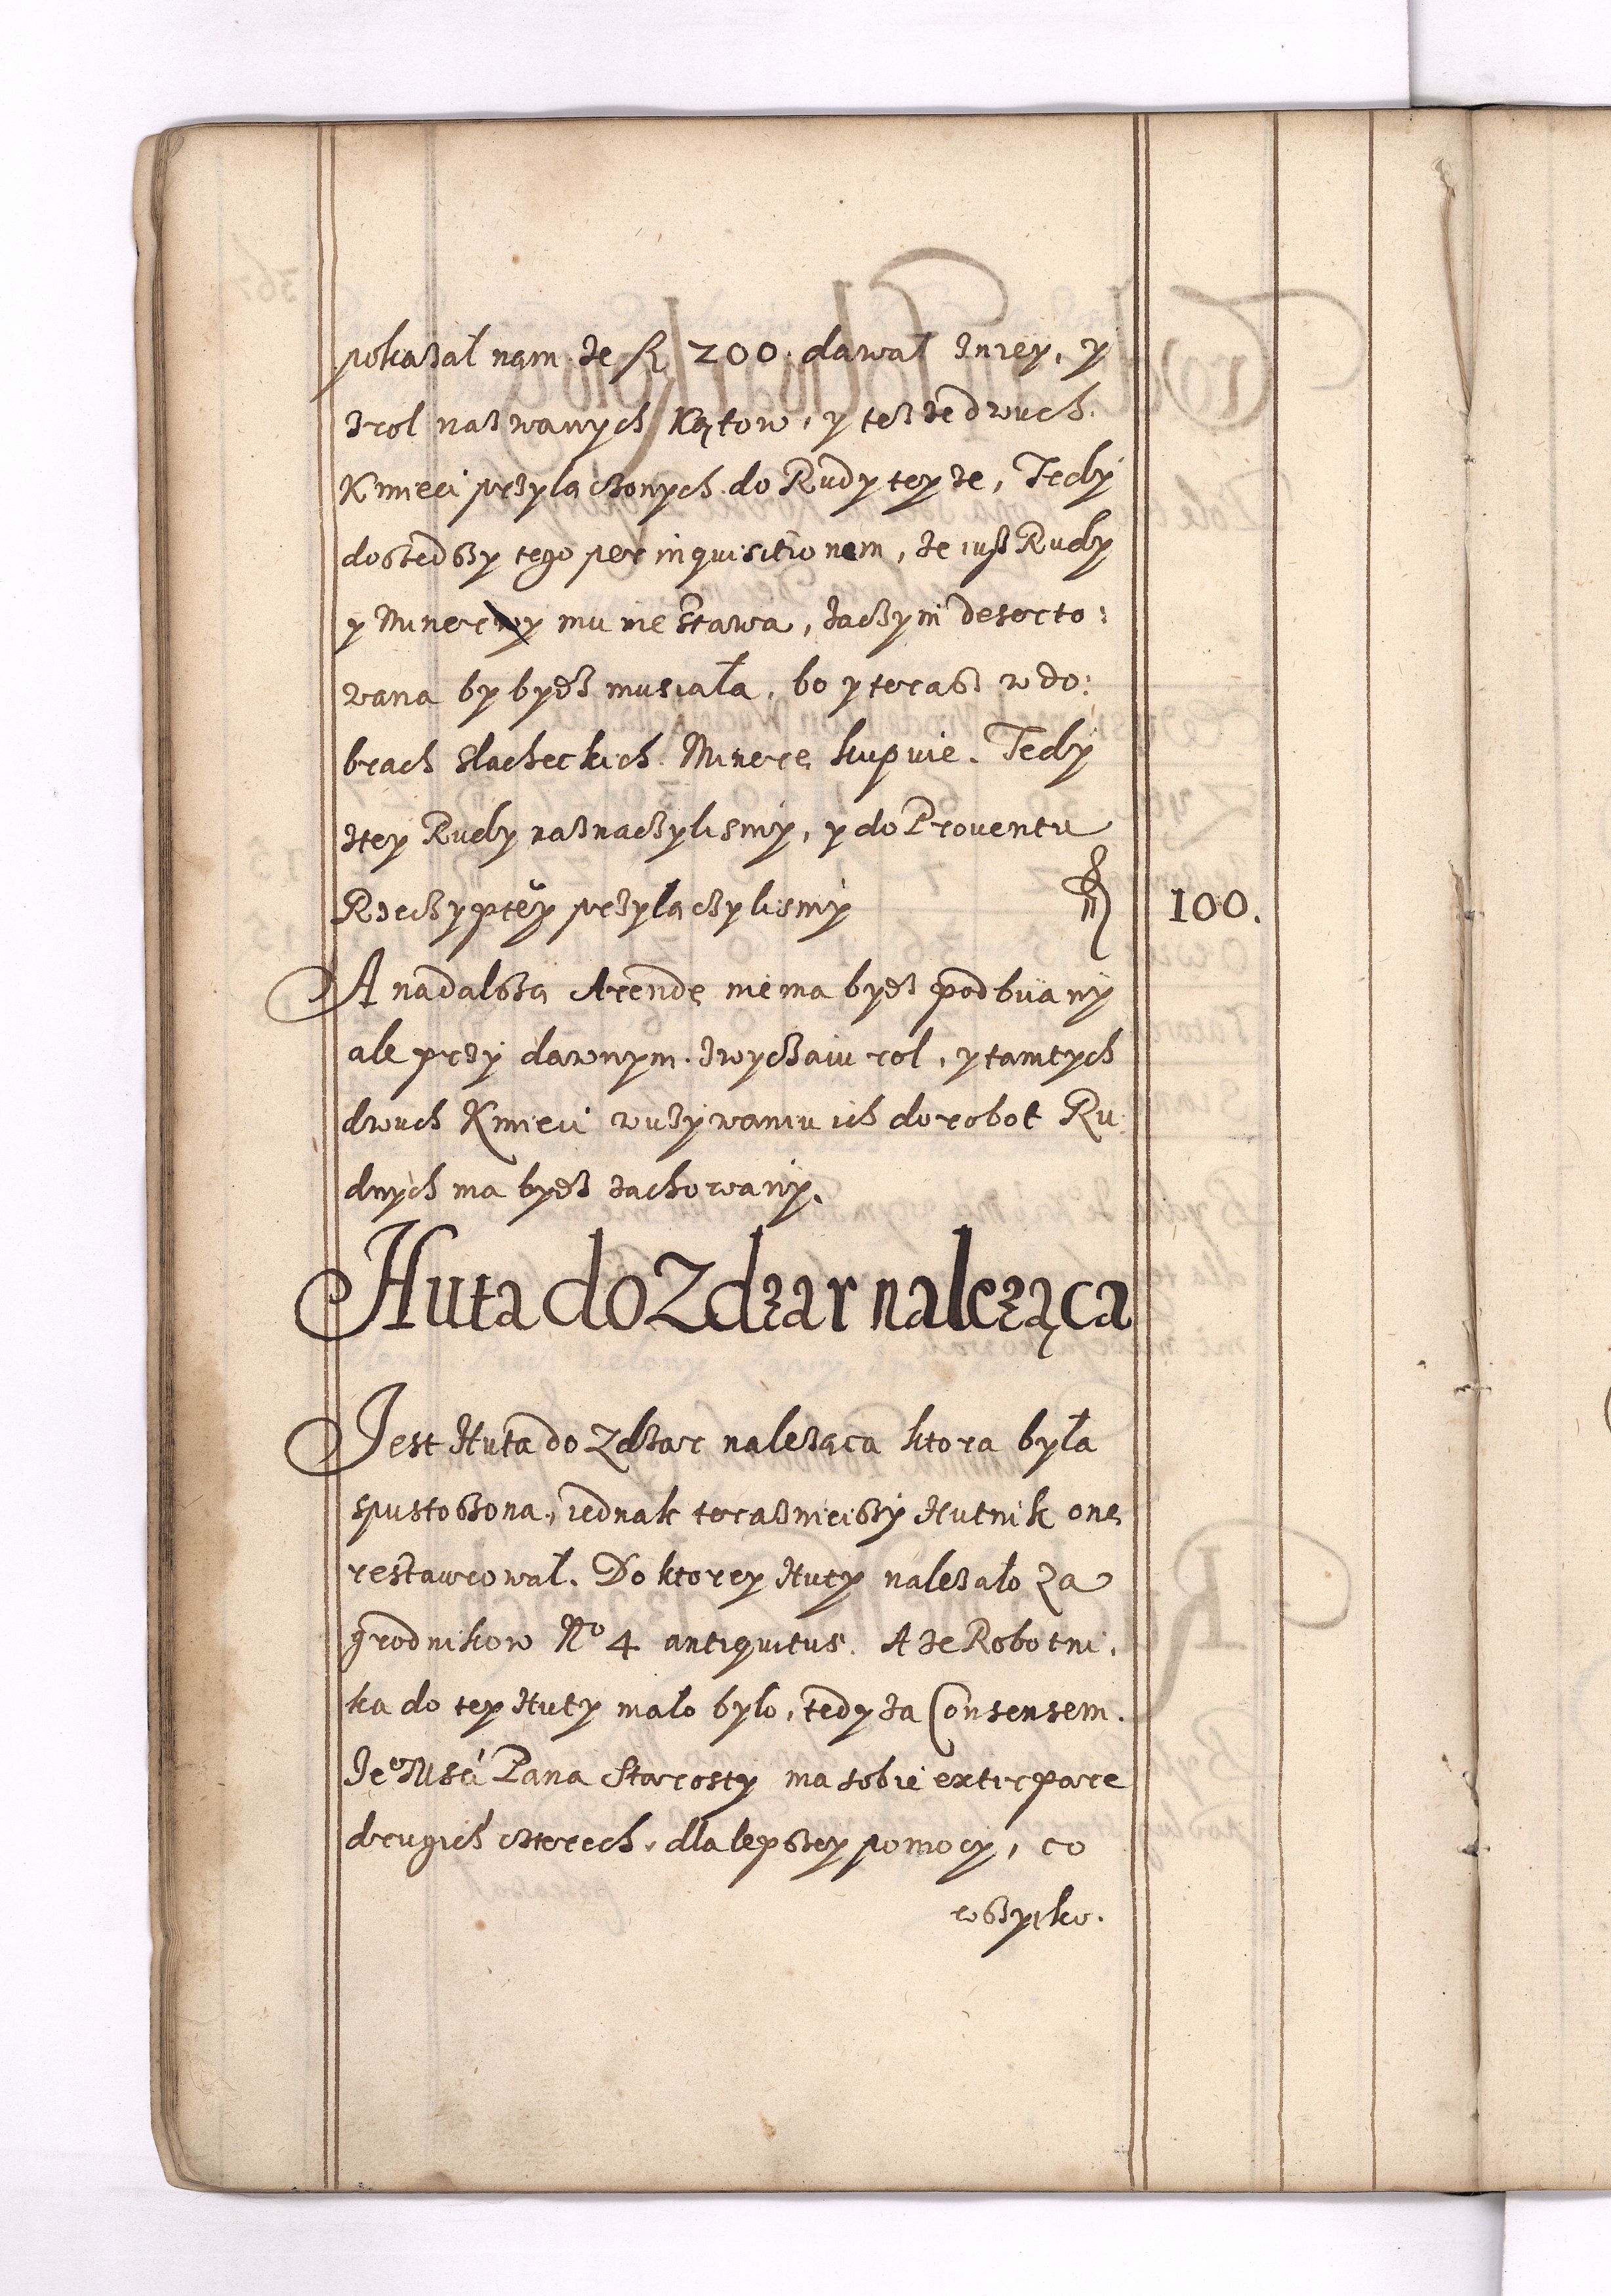 pokazał nąm że fl 200. dawał zniey, y
zrol nazwanych Kątow, y też ze dwuch
Kmieci przyłączonych do Rudy teyże, Tedy
doszedszy tego per inquisitionem, że iusz Rudy
y Minery mu nie stawa, zaczym deserto:
wana by bydz musiała, bo y terasz w do:
brach slacheckich Minerę kupuie. Tedy
ztey Rudy naznaczylismy, y do Prouentu
Rzeczyptey przyłączylismy fl 100.
A nadalszą Arendę niema bydz podbiiany
ale przy dawnym zwyczaiu rol, y tamtych
dwuch Kmieci wużywaniu ich do robot Ru
dnych ma bydz zachowany.
Huta do Zdzar należąca
Jest Huta do Zdzar należąca ktora była
spustoszona, iednak teraznieiszy Hutnik onę
restaurował. Do ktorey Huty należało Za
grodnikow No 4 antiquitus. A że Robotni,
ka do tey Huty mało było, tedy za Consensem.
Jeo Msci Pana Starosty ma sobie extirpare
drugich czterech, dla lepszey pomocy, co
wszytko.